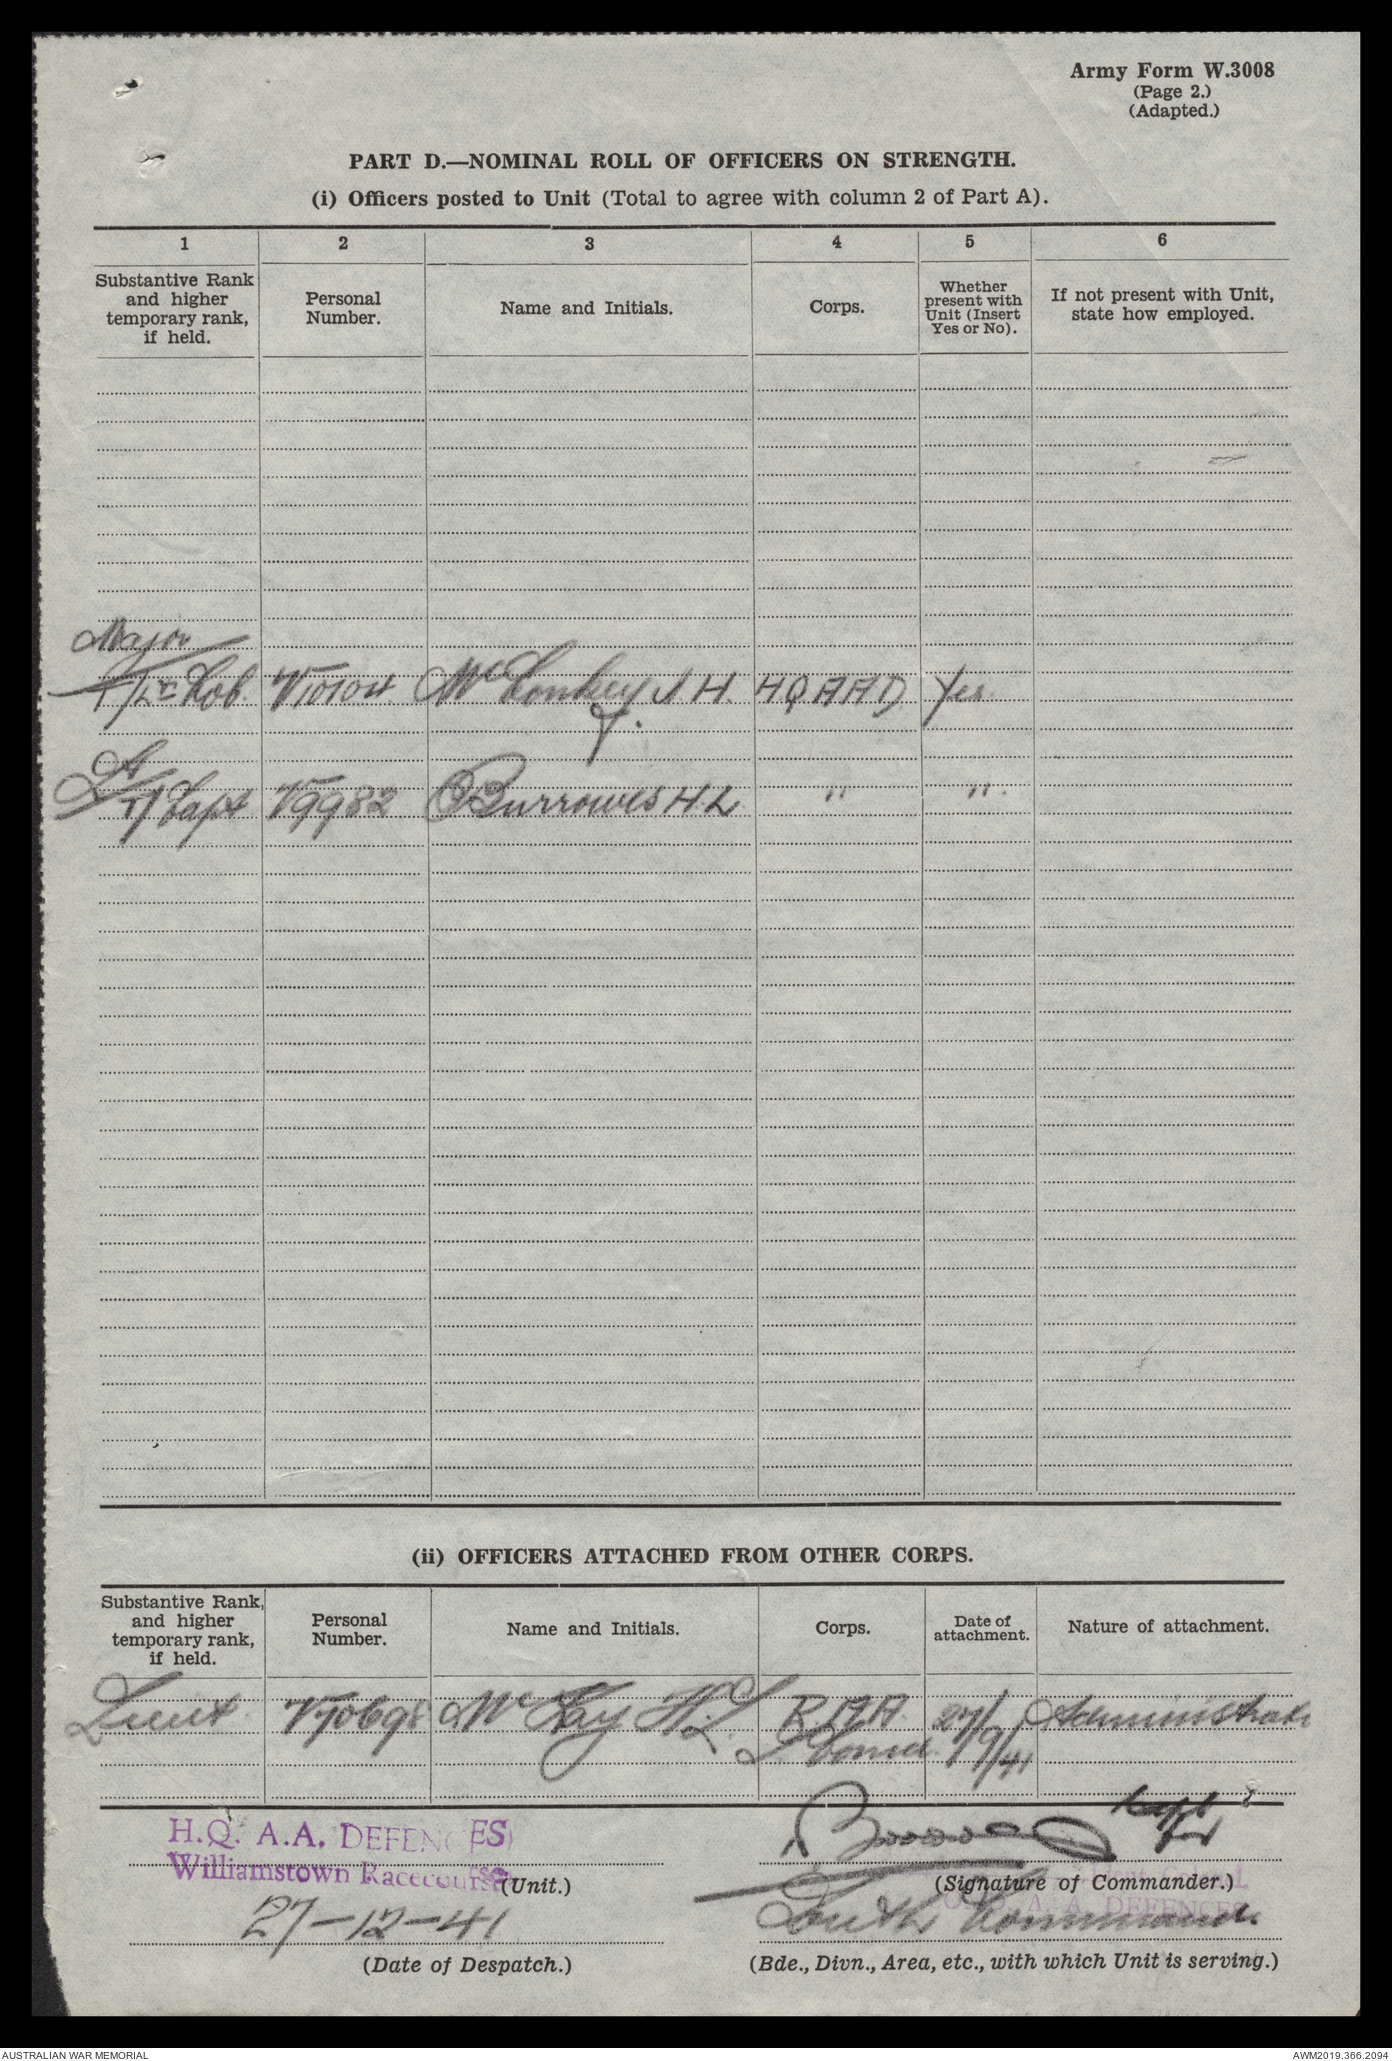 Army Form W.3008
(Page 2.)
(Adapted.)
PART D.—NOMINAL ROLL OF OFFICERS ON STRENGTH.
(i) Officers posted to Unit (Total to agree with column 2 of Part A).
1 2 3 4 5 6
Substantive Rank and higher temporary rank, if held.
Personal Number.
Name and Initials.
Corps.
Whether present with Unit (Insert Yes or No).
If not present with Unit, state how employed.
Major
T/Lt Col. V10104 McConkey J. H. H Q A A D Yes
Lt
T/Capt V9982 Burrowes H. L " "
(ii) OFFICERS ATTACHED FROM OTHER CORPS.
Substantive Rank, and higher temporary rank, if held.
Personal Number.
Name and Initials.
Corps.
Date of attachment.
Nature of attachment.
Lieut V70698 McKay H. L. R A A 27/9/41
H.Q. A.A. DEFENCES
Williamstown Racecourse
(Unit.)
Capt
(Signature of Commander.)
A. A. DEFENCES
27-12-41
South Command
(Date of Despatch.)
(Bde., Divn., Area, etc., with which Unit is serving.)
AUSTRALIAN WAR MEMORIAL
AWM2019.366.2094